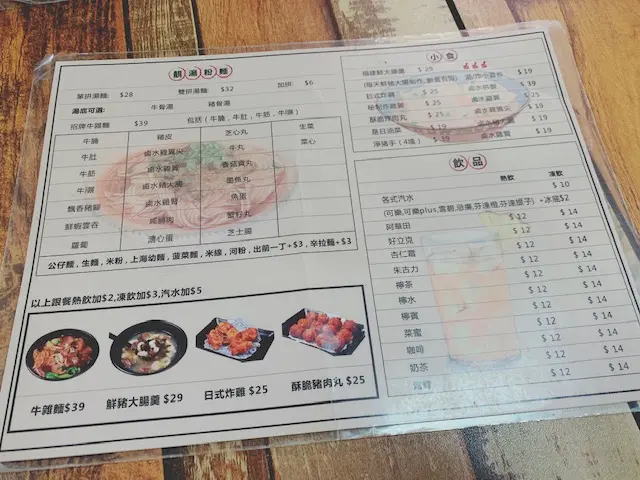 靚湯粉麵
單拼湯麵: $28 雙拼湯麵: $32 加拼: $6
湯底可選: 牛骨湯 豬骨湯
招牌牛雜麵 $39 包括 ( 牛腩 , 牛肚 , 牛筋 , 牛𦟌 )
牛腩 豬皮 芝心丸 生菜
牛肚 鹵水雞翼尖 牛丸 菜心
牛筋 鹵水雞翼 香菇貢丸
牛𦟌 鹵水豬大腸 墨魚丸
飄香豬腳 鹵水雞臂 魚蛋
鮮蝦雲吞 咸豬肉 蟹籽丸
蘿蔔 溏心蛋 芝士腸
公仔麵 , 生麵 , 米粉 , 上海幼麵 , 菠菜麵 , 米線 , 河粉 , 出前一丁+$3 , 辛拉麵+$3
以上跟餐熱飲加$2,凍飲加$3,汽水加$5
牛雜麵$39
鮮豬大腸羹 $29
日式炸雞 $25
酥脆豬肉丸 $25
小食
$ 29 $ 19
日式炸雞 $ 25 $ 39
$ 25 鹵水雞翼 $ 25
酥脆豬肉丸 $ 25 鹵水雞翼尖 $ 19
是日油菜 $ 19 $ 19
淨豬手 (4塊) $ 39 鹵水雞臂 $ 19
飲品
熱飲 凍飲
各式汽水 $ 10
(可樂,可樂plus,雪碧,忌廉,芬達橙,芬達提子) +冰底$2
阿華田 $ 12 $ 14
好立克 $ 12 $ 14
杏仁霜 $ 12 $ 14
朱古力 $ 12 $ 14
檸茶 $ 12 $ 14
檸水 $ 12 $ 14
檸賓 $ 12 $ 14
菜蜜 $ 12 $ 14
咖啡 $ 12 $ 14
奶茶 $ 12 $ 14
鴛鴦 $ 12 $ 14